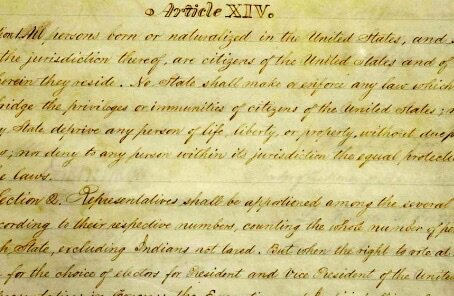 Article XIV.
ion 1. All persons born or naturalized in the United States, and
the jurisdiction thereof, are citizens of the United States and of
herein they reside. No State shall make or enforce any law which
bridge the privileges or immunities of citizens of the United States;
y State deprive any person of life, liberty, or property, without due p
; nor deny to any person within its jurisdiction the equal protectio
e laws.
ection 2. Representatives shall be apportioned among the several
ccording to their respective numbers, counting the whole number of pe
h State, excluding Indians not taxed. But when the right to vote at
for the choice of electors for President and Vice President of the United